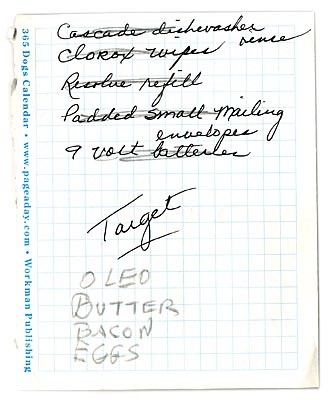 Cascade dishwasher
rinse
Clorox wipes
Resolve refill
Padded small mailing
envelopes
9 volt batteries
Target
OLEO
BUTTER
BACON
EGGS
365 Dogs Calendar • www.pageaday.com • Workman Publishing